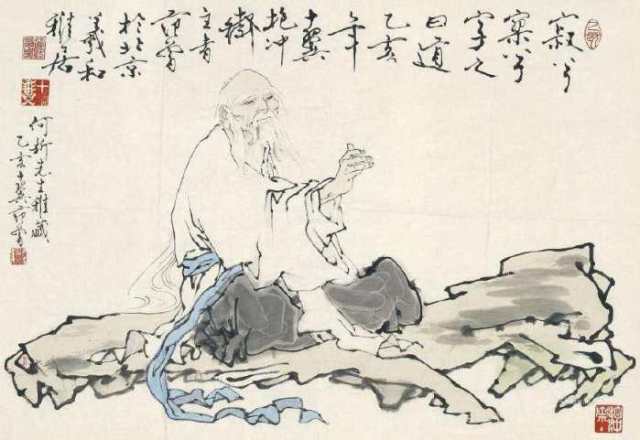 寂兮
寥兮
字之
曰道
乙亥
年
十翼
抱冲
主
范曾
於北京
羲和
雅居
何新先生雅藏
乙亥十翼范曾
十翼